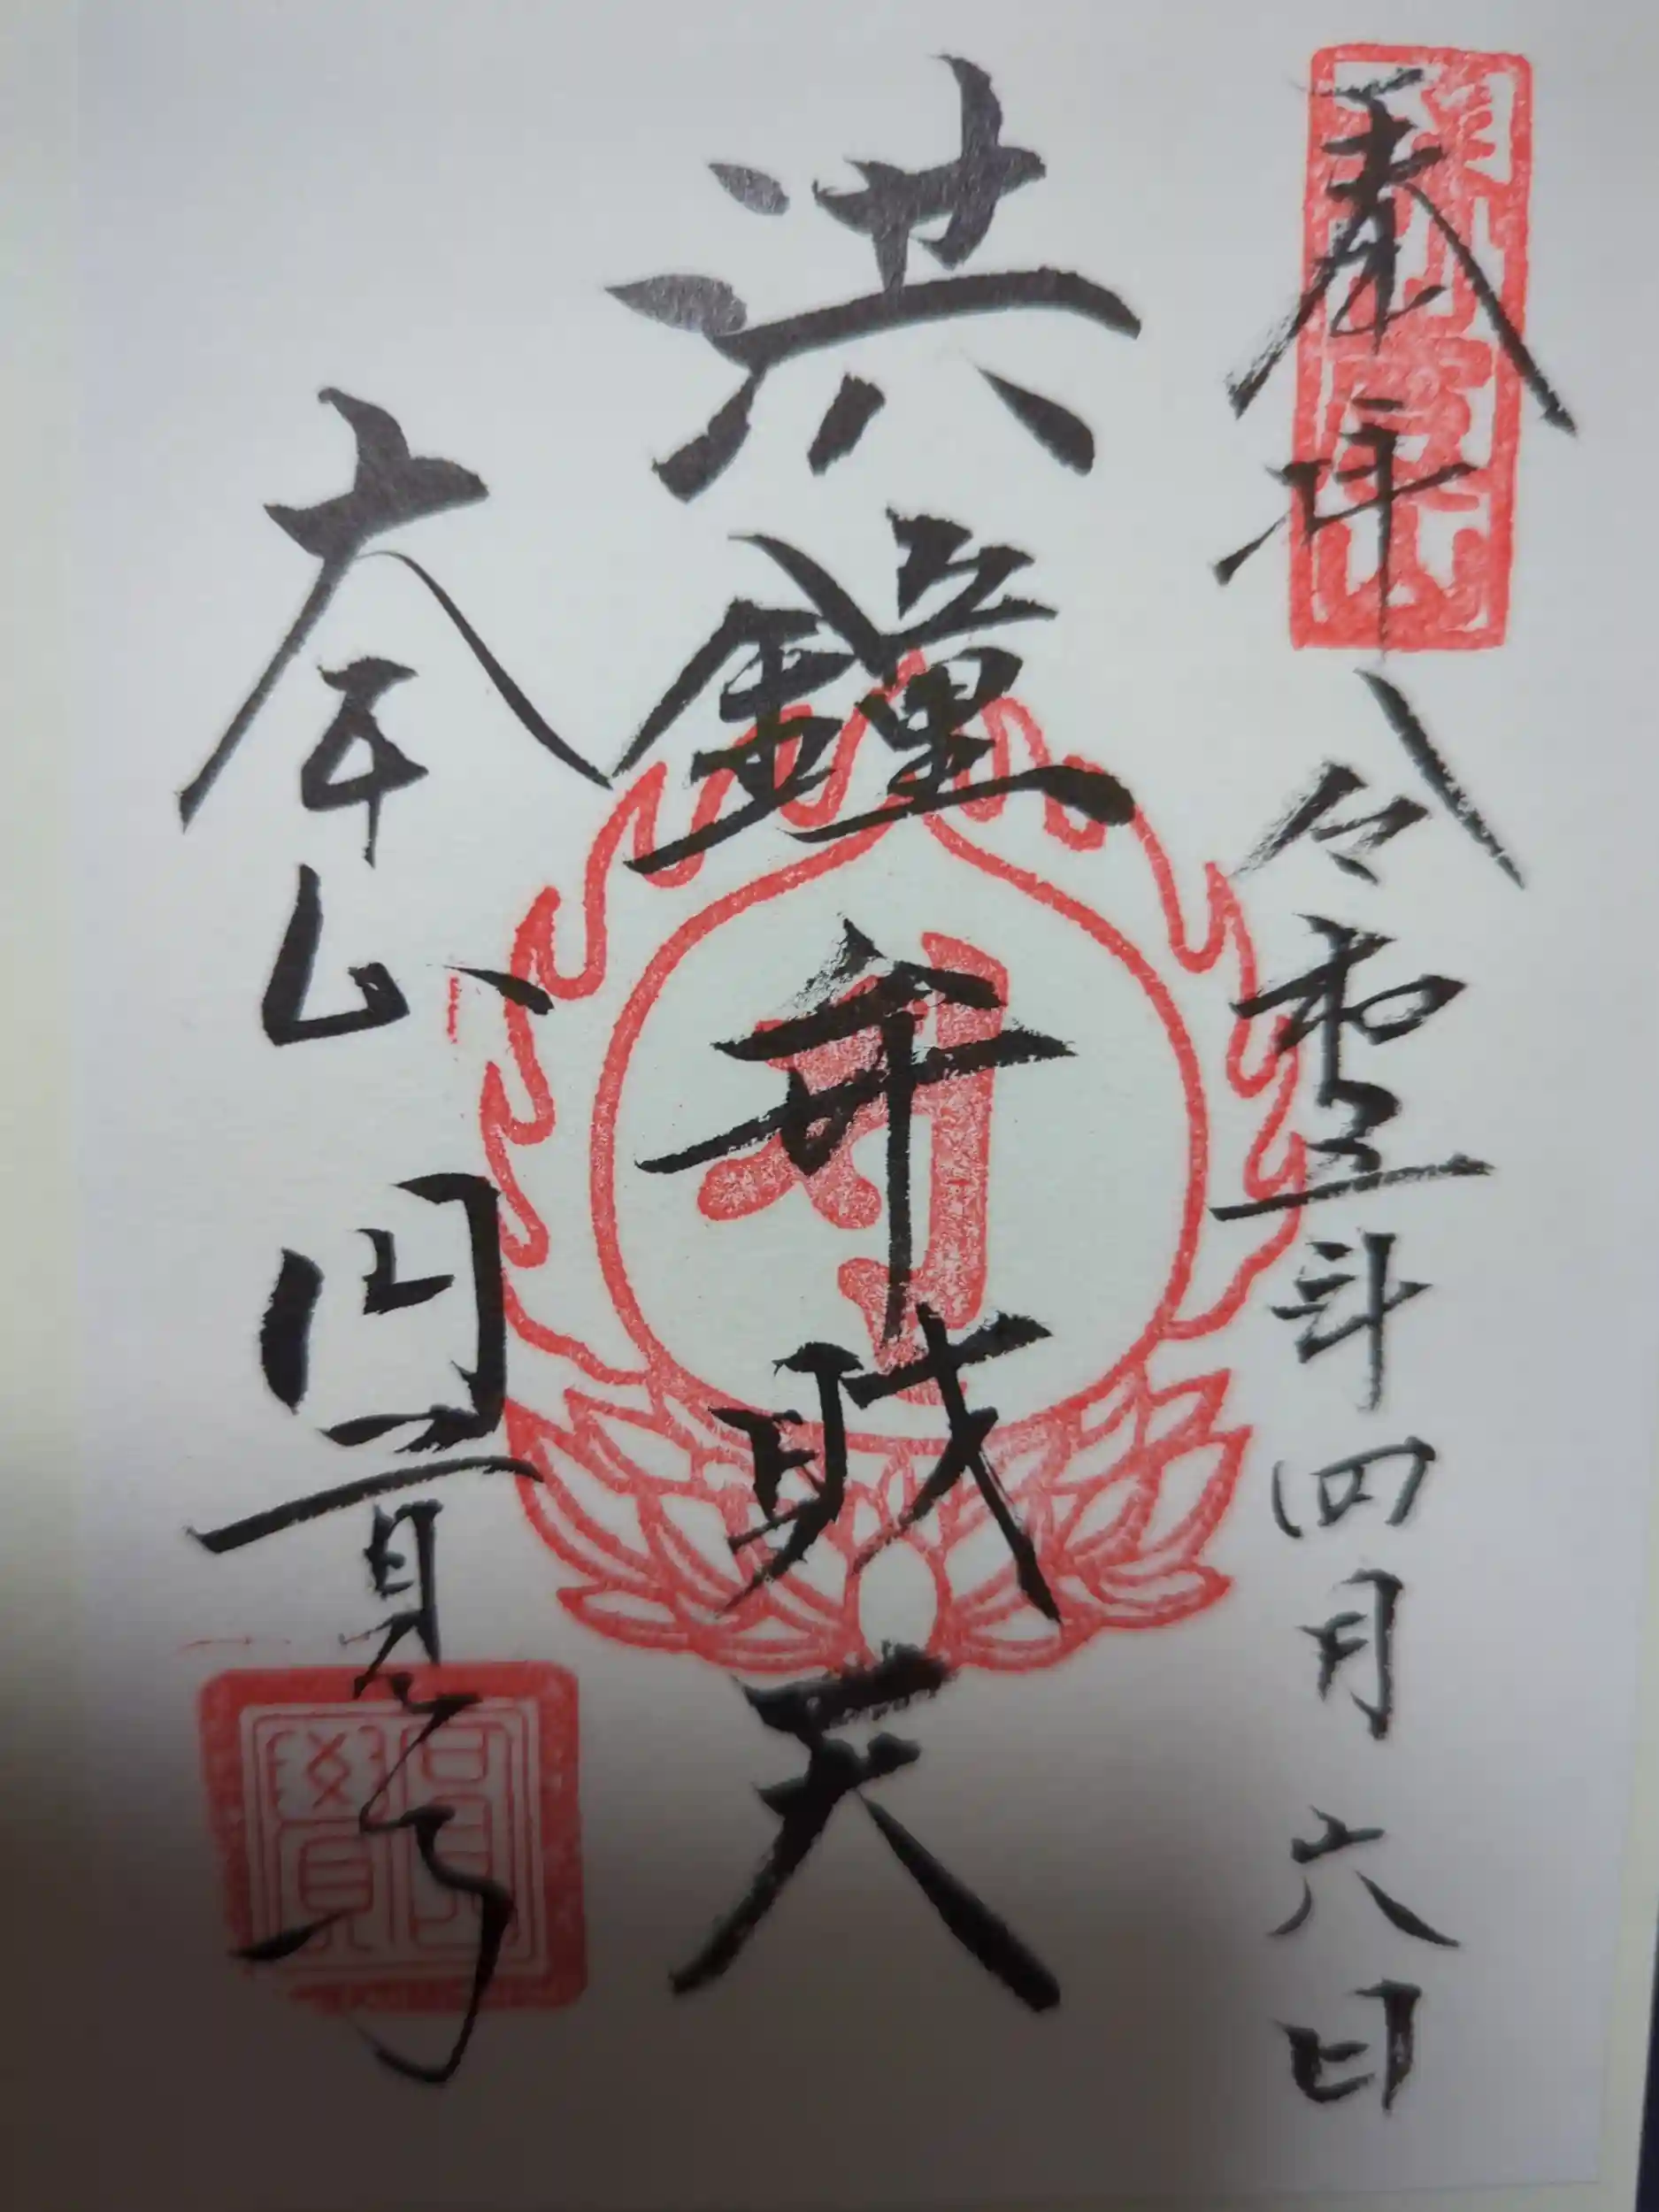 奉拝 令和五年四月六日
洪鐘弁財天
大本山円覚寺
圓覺